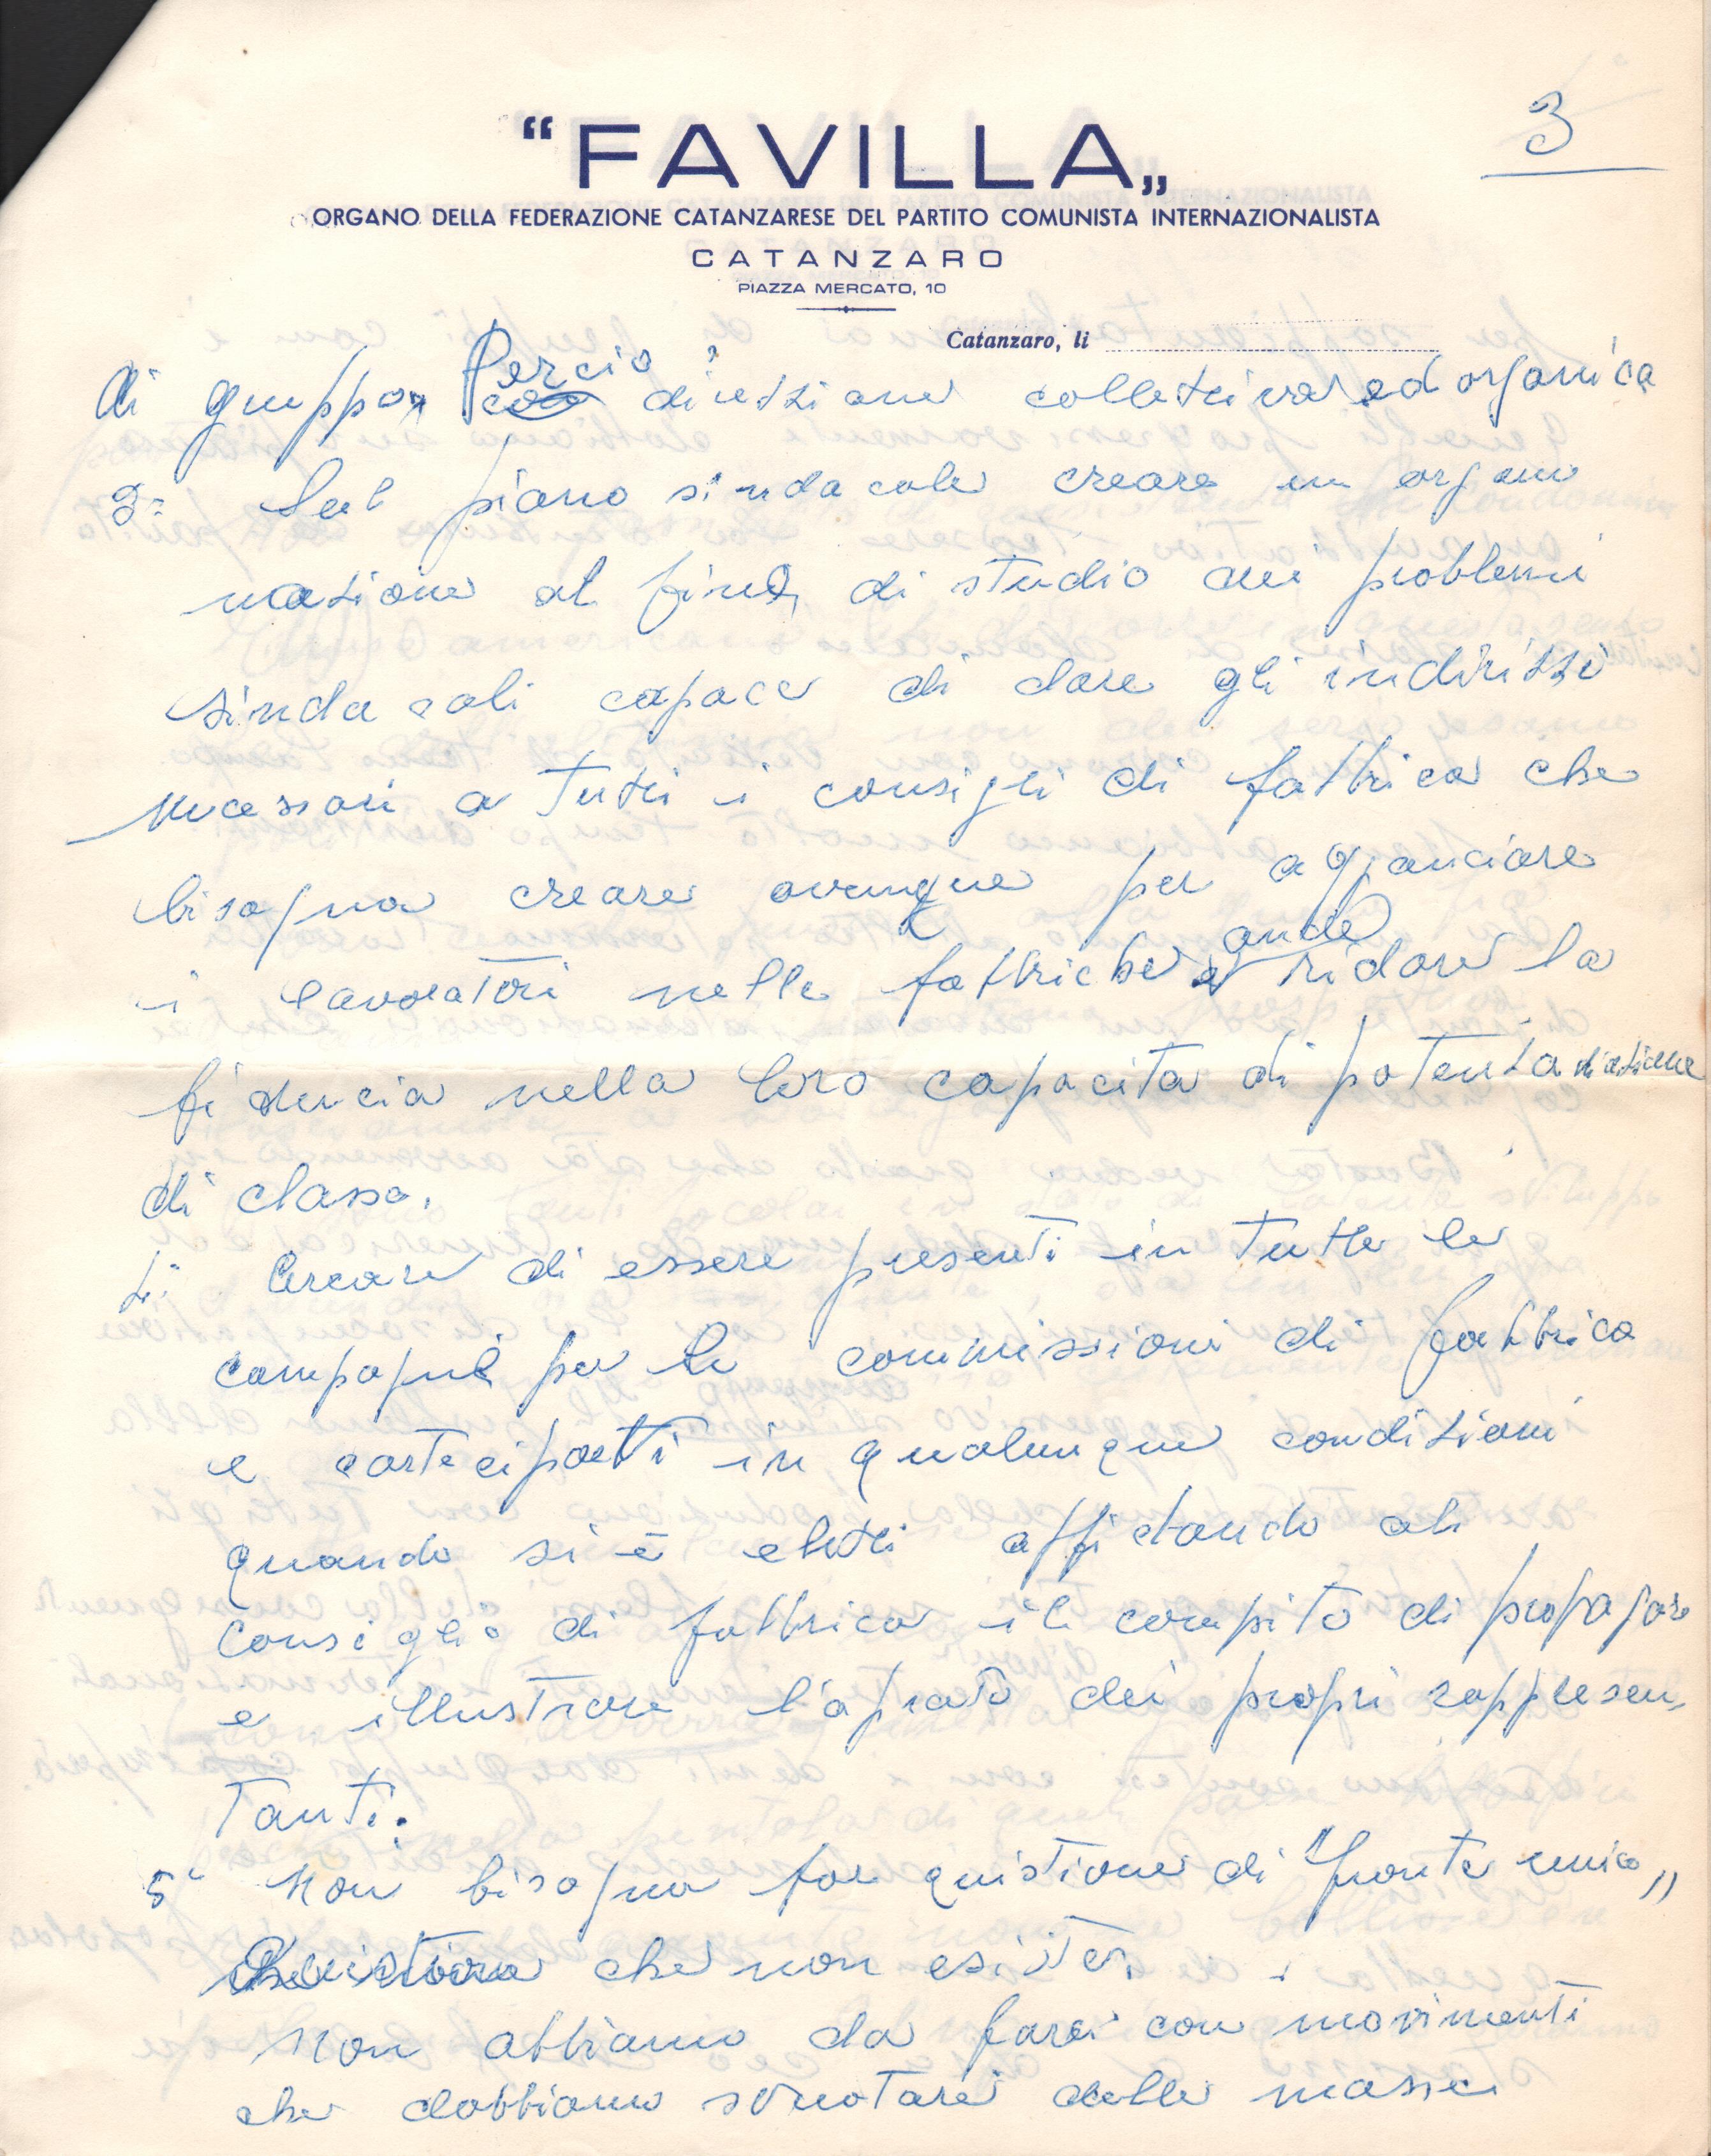 3
“FAVILLA„
ORGANO DELLA FEDERAZIONE CATANZARESE DEL PARTITO COMUNISTA INTERNAZIONALISTA
CATANZARO
PIAZZA MERCATO, 10
Catanzaro, li
di gruppo, Perciò direzione collettiva ed organica
3° Sul piano sindacale creare un organi
nazione al fine di studio dei problemi
sindacali capace di dare gli indirizzi
necessari a tutti i consigli di fabbrica che
bisogna creare ovunque per agganciare
i lavoratori nelle fabbriche onde ridare la
fiducia nella loro capacità di potenza di azione
di classe.
4° Cercare di essere presenti in tutte le
campagne per le commissioni di fabbrica
e parteciparvi in qualunque condizioni
quando si è eletti affidando al
consiglio di fabbrica il compito di propagare
e illustrare l'operato dei propri rappresen-
tanti.
5° Non bisogna far quistione di "fronte unico„
che non esiste.
Non abbiamo da fare con movimenti
che dobbiamo svuotare delle masse